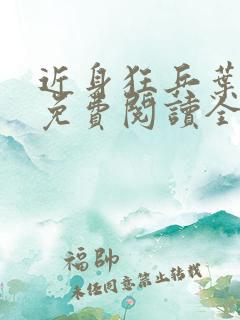 近身狂兵葉
免費閱讀全
福帥
未经同意禁止转载